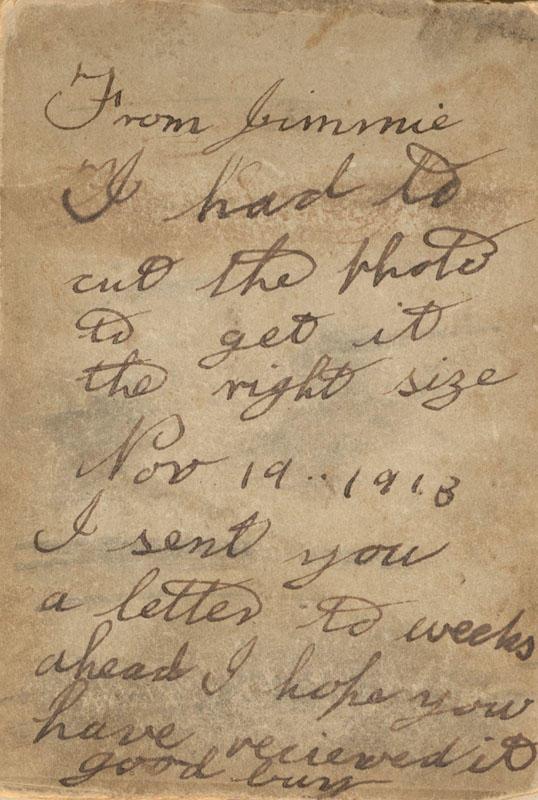 From Jimmie
I had to
cut the photo
to get it
the right size
Nov 19..1913
I sent you
a letter to weeks
ahead I hope you
have recieved it
good buy